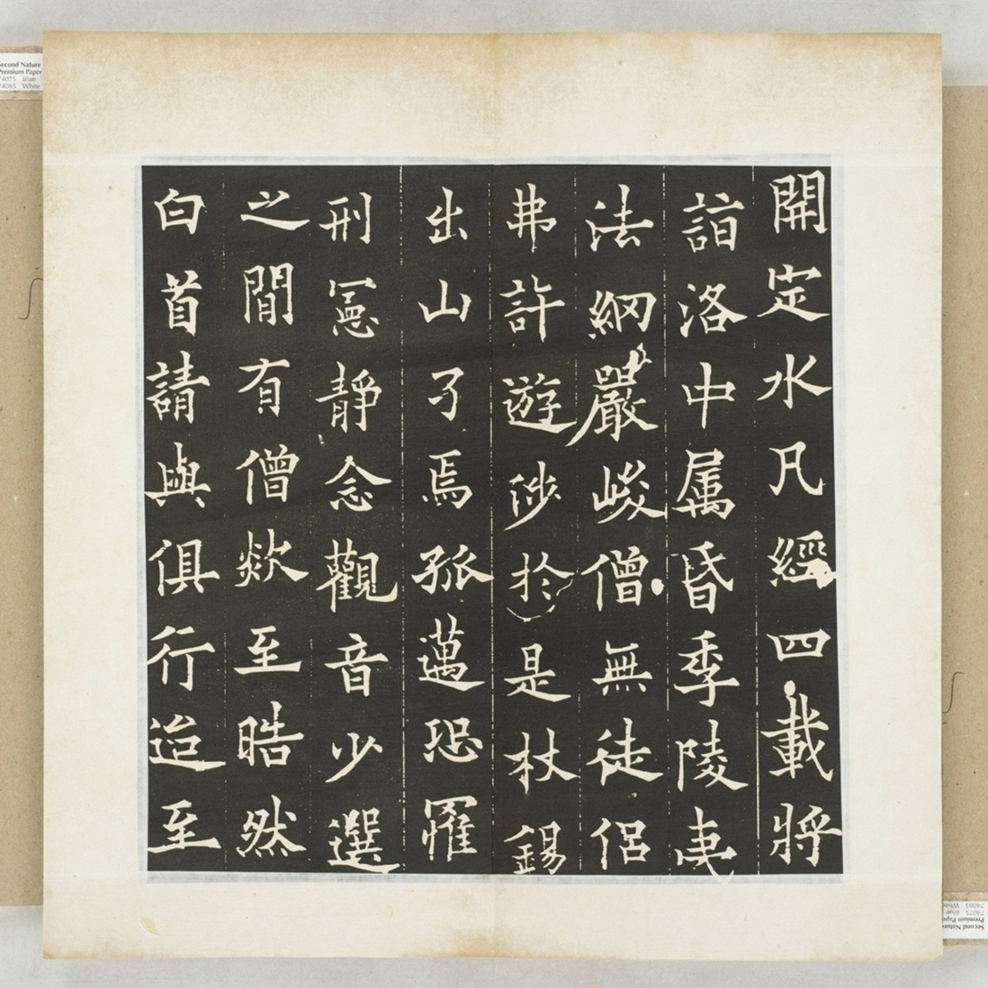 開定水凡經四載將
詣洛中属昏季陵夷
法綱嚴峻僧無徒侶
弗許遊涉於是杖錫
出山孑焉孤邁恐罹
刑憲静念觀音少選
之間有僧欻至晧然
白首請與俱行迨至
Second Nature
Premium Paper
74075 Blue
74085 White
Second Nature
Premium Paper
74075 Blue
74085 White